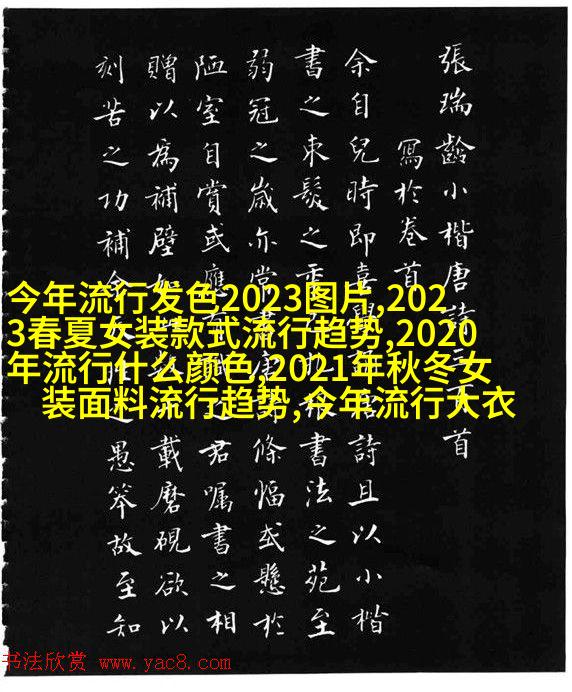 張瑞齡小楷唐詩三百首
寫於卷首
余自兒時即喜詩且以小楷
書之束髮之書法之苑至
弱冠之歲亦常書唐條幅或懸於
陋室自賞或應君囑書之相
贈以為補壁載磨硯欲以
刻苦之功補愚笨故至知
今年流行发色2023图片,202
3春夏女装款式流行趋势,2020
年流行什么颜色,2021年秋冬女
装面料流行趋势,今年流行大衣
书法欣赏 www.yac8.com